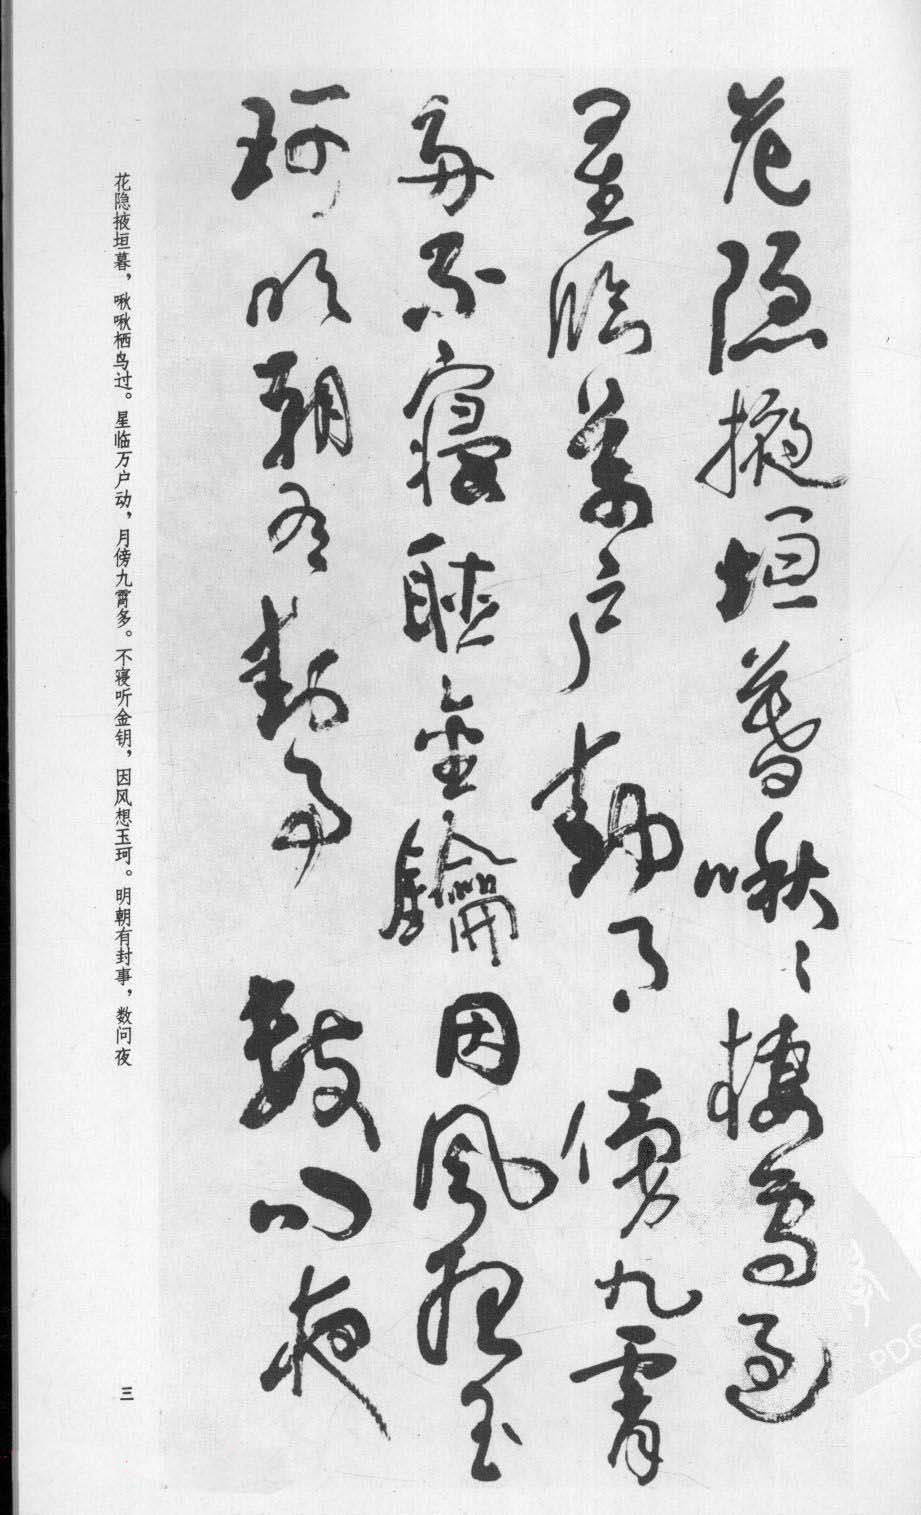 花隱掖垣暮啾〻棲鳥過
星臨萬戶動月傍九霄
多不寢聽金鑰因風想玉
珂明朝有封事數問夜
花隐掖垣暮，啾啾栖鸟过。星临万户动，月傍九霄多。不寝听金钥，因风想玉珂。明朝有封事，数问夜
三